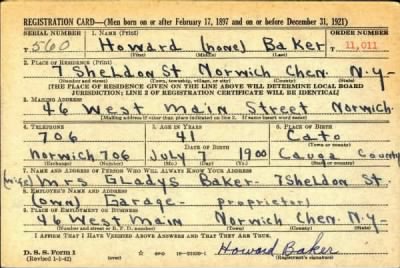 REGISTRATION CARD—(Men born on or after February 17, 1897 and on or before December 31, 1921)
SERIAL NUMBER 1. NAME (Print) ORDER NUMBER
T 560 Howard (none) Baker 11,011
(First) (Middle) (Last)
2. PLACE OF RESIDENCE (Print)
7 Sheldon St Norwich Chen. N.Y-
(Number and street) (Town, township, village, or city) (County) (State)
[THE PLACE OF RESIDENCE GIVEN ON THE LINE ABOVE WILL DETERMINE LOCAL BOARD
JURISDICTION; LINE 2 OF REGISTRATION CERTIFICATE WILL BE IDENTICAL]
3. MAILING ADDRESS
46 West Main Street Norwich.
(Mailing address if other than place indicated on line 2. If same insert word same)
4. TELEPHONE 5. AGE IN YEARS 6. PLACE OF BIRTH
706 41 Cato
DATE OF BIRTH (Town or county)
Norwich 706 July 7 1900 Cauga County
(Exchange) (Number) (Mo.) (Day) (Yr.) (State or country)
7. NAME AND ADDRESS OF PERSON WHO WILL ALWAYS KNOW YOUR ADDRESS
(wife) Mrs Gladys Baker- 7 Sheldon St.
8. EMPLOYER'S NAME AND ADDRESS
(own) Garage- proprietor
9. PLACE OF EMPLOYMENT OR BUSINESS
46 West Main Norwich Chen. N.Y-
(Number and street or R. F. D. number) (Town) (County) (State)
I AFFIRM THAT I HAVE VERIFIED ABOVE ANSWERS AND THAT THEY ARE TRUE.
D. S. S. Form 1
(Revised 1-1-42) (over) GPO Howard Baker